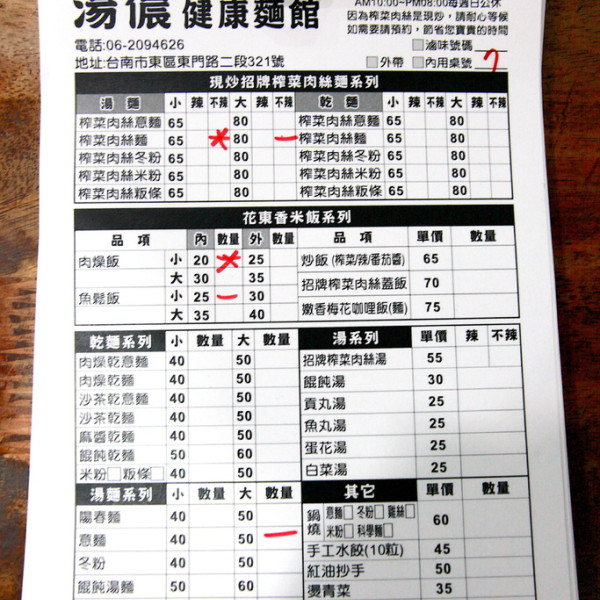 湯儂 健康麵館
AM10:00~PM08:00每週日公休
因為榨菜肉絲是現炒，請耐心等候
如需要請預約，節省您寶貴的時間
電話:06-2094626 □滷味號碼
地址:台南市東區東門路二段321號 □外帶 □內用桌號 7
現炒招牌榨菜肉絲麵系列
湯麵 小 辣 不辣 大 辣 不辣 乾麵 小 辣 不辣 大 辣 不辣
榨菜肉絲意麵 65 80 榨菜肉絲意麵 65 80
榨菜肉絲麵 65 80 一 榨菜肉絲麵 65 80
榨菜肉絲冬粉 65 80 榨菜肉絲冬粉 65 80
榨菜肉絲米粉 65 80 榨菜肉絲米粉 65 80
榨菜肉絲粄條 65 80 榨菜肉絲粄條 65 80
花東香米飯系列
品項 內 數量 外 數量 品項 單價 數量
肉燥飯 小 20 25 炒飯 (榨菜/辣/番茄醬) 65
大 30 35 招牌榨菜肉絲蓋飯 70
魚鬆飯 小 25 一 30 嫩香梅花咖哩飯(麵) 75
大 35 40
乾麵系列 小 數量 大 數量 湯系列 單價 辣 不辣
肉燥乾意麵 40 50 招牌榨菜肉絲湯 55
肉燥乾麵 40 50 餛飩湯 30
沙茶乾意麵 40 50 貢丸湯 25
沙茶乾麵 40 50 魚丸湯 25
麻醬乾麵 40 50 蛋花湯 25
餛飩乾麵 50 60 白菜湯 25
米粉□ 粄條□ 40 50
湯麵系列 小 數量 大 數量 其它 單價 數量
陽春麵 40 50 鍋燒 意麵□ 冬粉□ 雞絲□ 米粉□ 科學麵□ 60
意麵 40 50 一 手工水餃(10粒) 45
冬粉 40 50 紅油抄手 50
餛飩湯麵 50 60 燙青菜 35